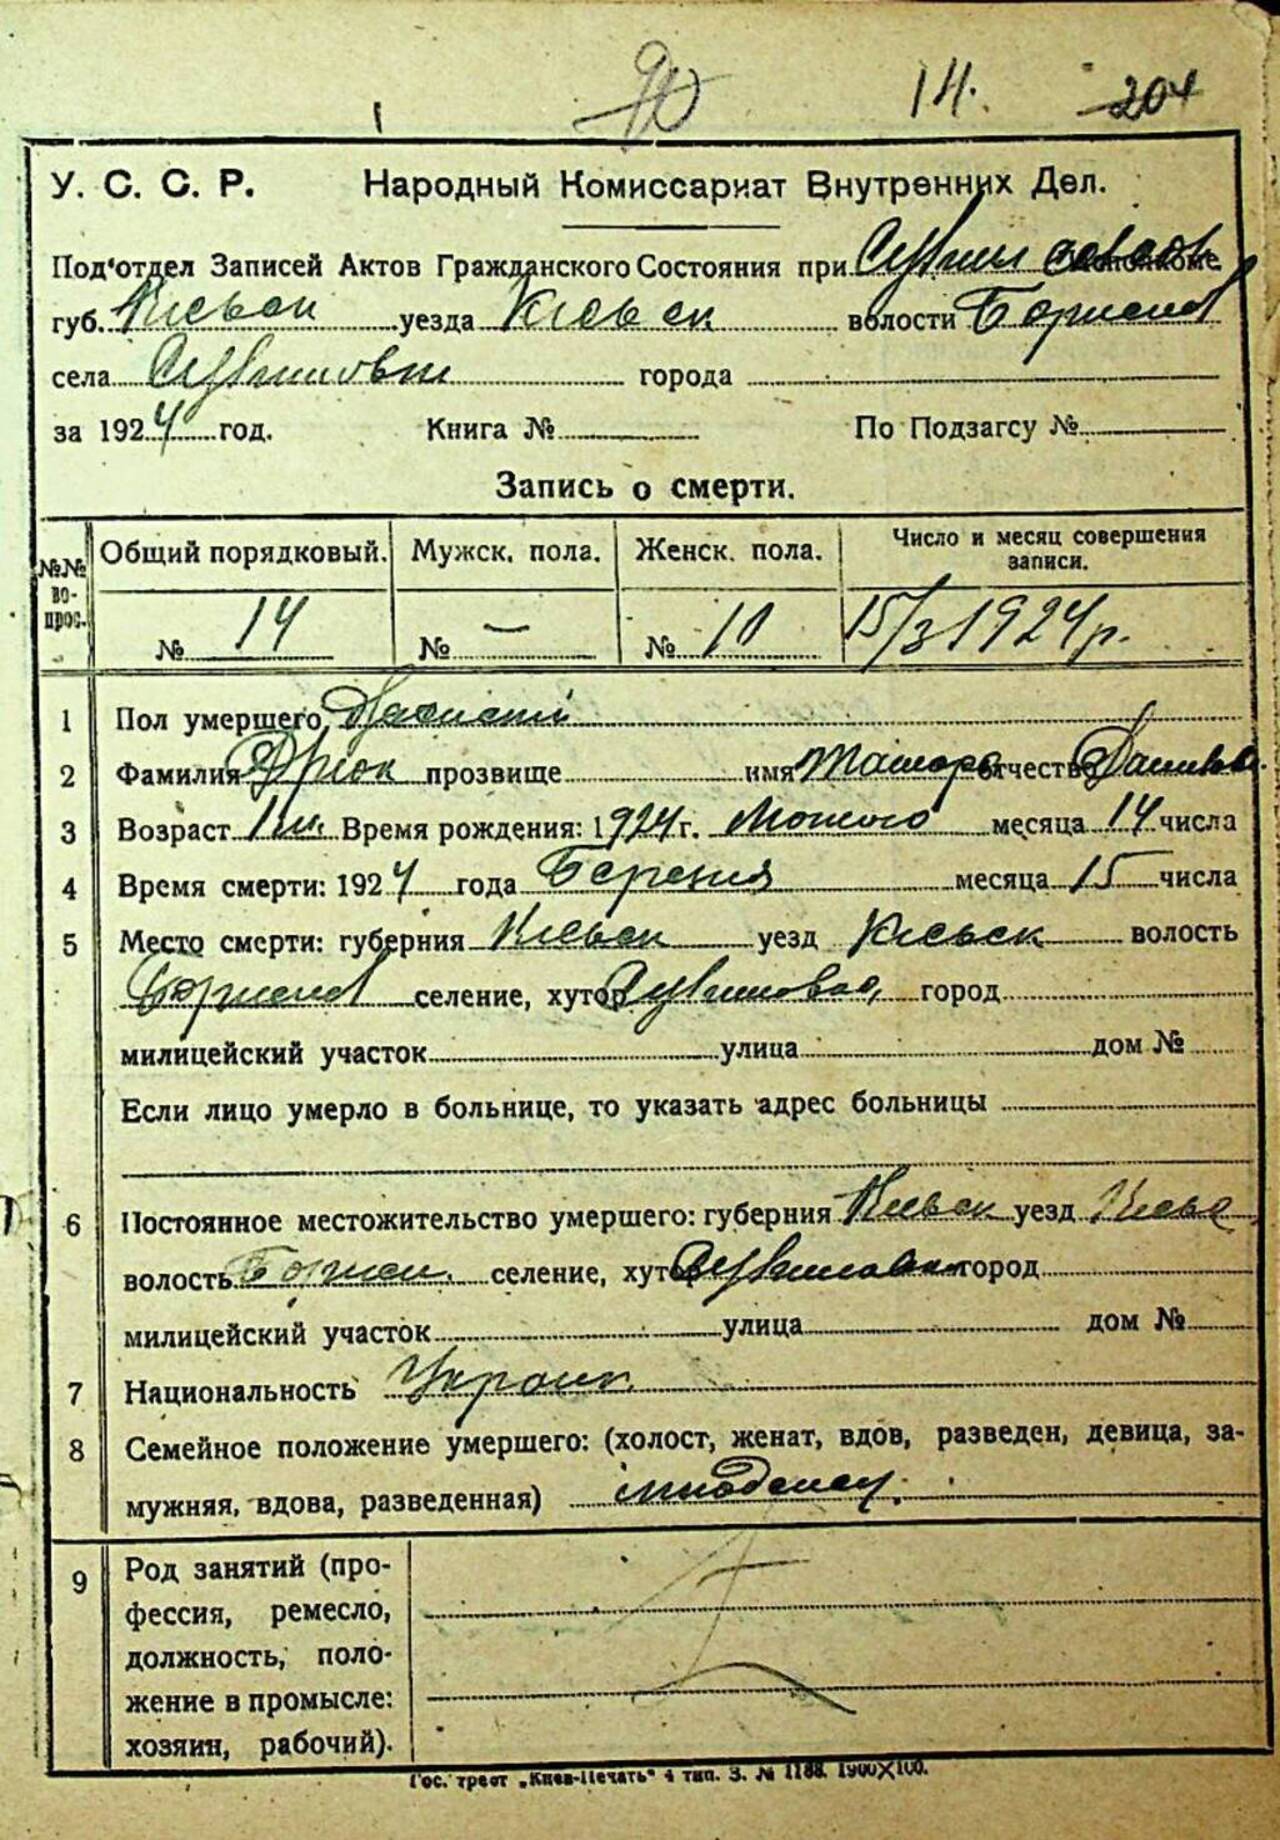 14. 204
У. С. С. Р. Народный Комиссариат Внутренних Дел.
Под‘отдел Записей Актов Гражданского Состояния при
губ. Киевск уезда Киевск волости
села города
за 1924 год. Книга № По Подзагсу №
Запись о смерти.
№№ вопрос. Общий порядковый. Мужск. пола. Женск. пола. Число и месяц совершения записи.
№ 14 № — № 10 15/3 1924 р.
1 Пол умершего
2 Фамилия прозвище имя отчество
3 Возраст 1 м. Время рождения: 1924 г. Лютого месяца 14 числа
4 Время смерти: 1924 года Березня месяца 15 числа
5 Место смерти: губерния Киевск уезд Киевск волость
селение, хутор город
милицейский участок улица дом №
Если лицо умерло в больнице, то указать адрес больницы
6 Постоянное местожительство умершего: губерния Киевск уезд
волость селение, хутор город
милицейский участок улица дом №
7 Национальность Украин.
8 Семейное положение умершего: (холост, женат, вдов, разведен, девица, за-
мужняя, вдова, разведенная) младенец.
9 Род занятий (про-
фессия, ремесло,
должность, поло-
жение в промысле:
хозяин, рабочий).
Гос. трест „Киев-Печать“ 4 тип. З. № 1188. 1900×100.